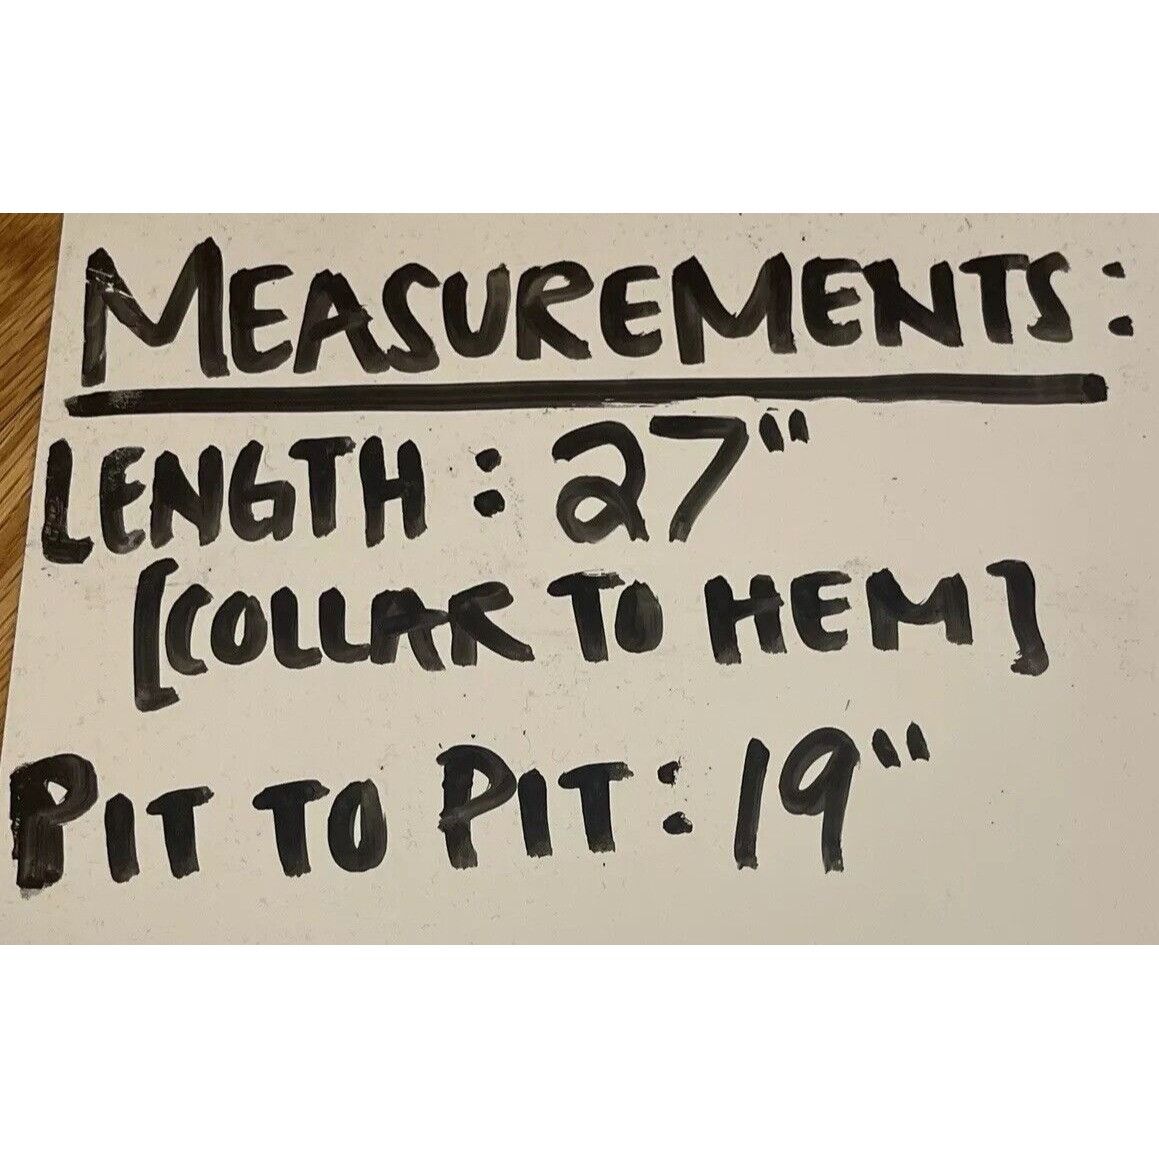 MEASUREMENTS:
LENGTH: 27"
[COLLAR TO HEM]
PIT TO PIT: 19"